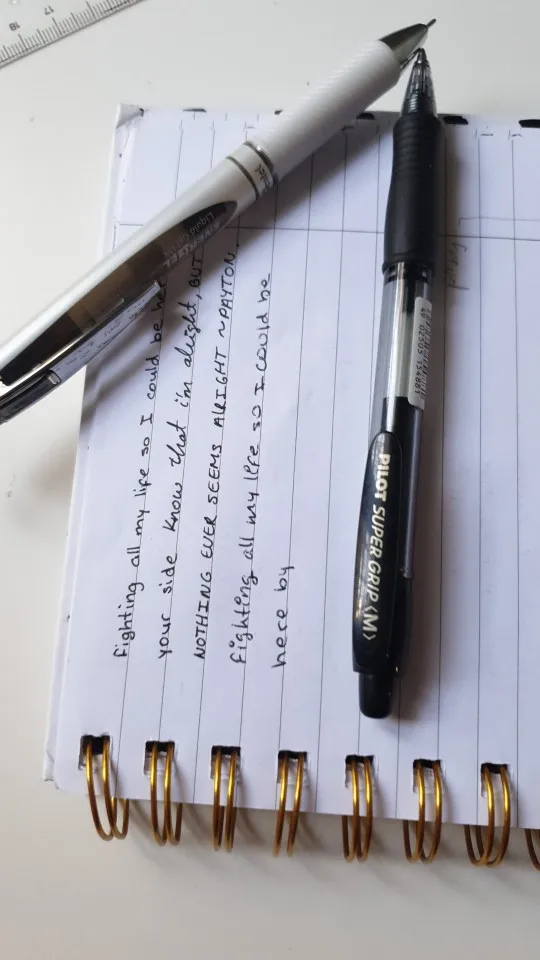 fighting all my life so I could be her
your side know that i'm alright, BUT
NOTHING EVER SEEMS ALRIGHT ~PAYTON.
fighting all my life so I could be
here by
PILOT SUPER GRIP (M)
ENERGEL
Liquid
17
18